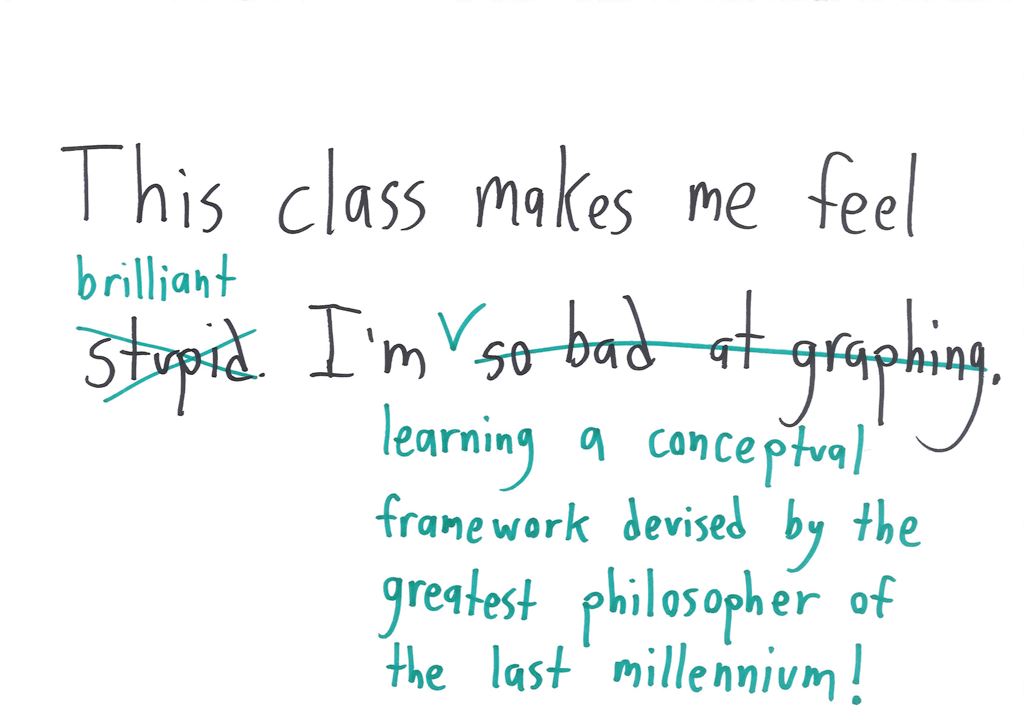 This class makes me feel
brilliant
stupid. I'm so bad at graphing.
learning a conceptual
framework devised by the
greatest philosopher of
the last millennium!